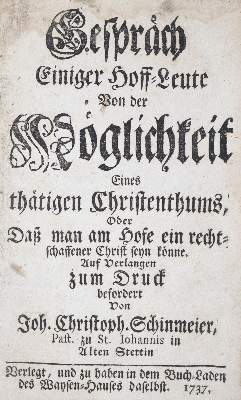 Gespräch
Einiger Hoff-Leute
Von der
Möglichkeit
Eines
thätigen Christenthums,
Oder
Daß man am Hofe ein recht-
schaffener Christ seyn könne.
Auf Verlangen
zum Druck
befordert
Von
Joh. Christoph. Schinmeier,
Past. zu St. Iohannis in
Alten Stettin
Verlegt, und zu haben in dem Buch-Laden
des Waysen-Hauses daselbst. 1737.